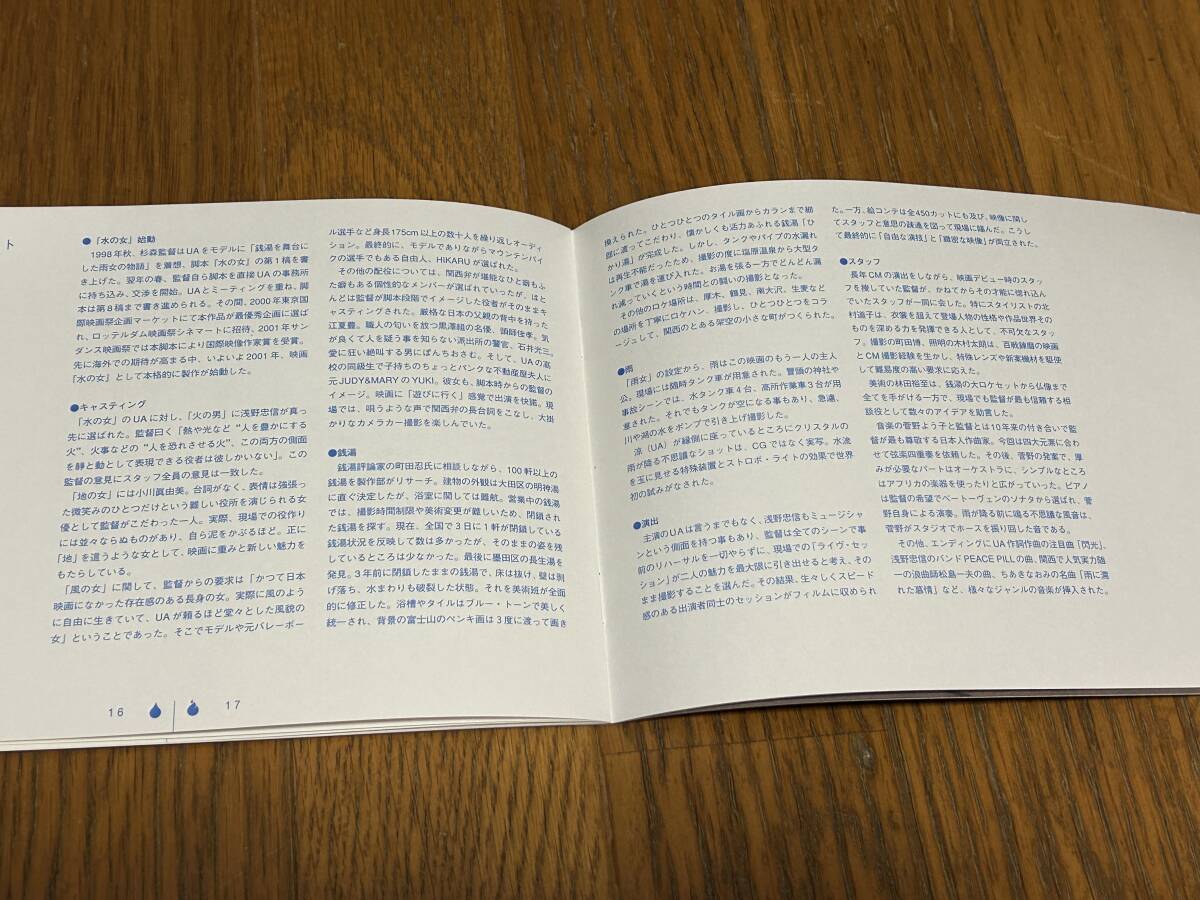 ト
●「水の女」始動
1998年秋、杉森監督はUAをモデルに「銭湯を舞台に
した雨女の物語」を着想、脚本「水の女」の第1稿を書
き上げた。翌年の春、監督自ら脚本を直接UAの事務所
に持ち込み、交渉を開始。UAとミーティングを重ね、脚
本は第8稿まで書き進められる。その間、2000年東京国
際映画祭企画マーケットにて本作品が最優秀企画に選ば
れ、ロッテルダム映画祭シネマートに招待、2001年サン
ダンス映画祭では本脚本により国際映像作家賞を受賞。
先に海外での期待が高まる中、いよいよ2001年、映画
「水の女」として本格的に製作が始動した。
●キャスティング
「水の女」のUAに対し、「火の男」に浅野忠信が真っ
先に選ばれた。監督曰く「熱や光など“人を豊かにする
火”、火事などの“人を恐れさせる火”、この両方の側面
を静と動として表現できる役者は彼しかいない」。この
監督の意見にスタッフ全員の意見は一致した。
「地の女」には小川眞由美。台詞がなく、表情は強張っ
た微笑みのひとつだけという難しい役所を演じられる女
優として監督がこだわった一人。実際、現場での役作り
には並々ならぬものがあり、自ら泥をかぶるほど。正に
「地」を這うような女として、映画に重みと新しい魅力を
もたらしている。
「風の女」に関して、監督からの要求は「かつて日本
映画になかった存在感のある長身の女。実際に風のよう
に自由に生きていて、UAが頼るほど堂々とした風貌の
女」ということであった。そこでモデルや元バレーボー
ル選手など身長175cm以上の数十人を繰り返しオーディ
ション。最終的に、モデルでありながらマウンテンバイ
クの選手でもある自由人、HiKARUが選ばれた。
その他の配役については、関西弁が堪能なひと癖もふ
た癖もある個性的なメンバーが選ばれていったが、ほと
んどは監督が脚本段階でイメージした役者がそのままキ
ャスティングされた。厳格な日本の父親の背中を持った
江夏豊。職人の匂いを放つ黒澤組の名優、頭師佳孝。気
が良くて人を疑う事を知らない派出所の警官、石井光三。
愛に狂い絶叫する男にぽんちおさむ。そして、UAの高
校の同級生で子持ちのちょっとパンクな不動産屋夫人に
元JUDY&MARYのYUKI。彼女も、脚本時からの監督の
イメージ。映画に「遊びに行く」感覚で出演を快諾。現
場では、唄うような声で関西弁の長台詞をこなし、大掛
かりなカメラカー撮影を楽しんでいた。
●銭湯
銭湯評論家の町田忍氏に相談しながら、100軒以上の
銭湯を製作部がリサーチ。建物の外観は大田区の明神湯
に直ぐ決定したが、浴室に関しては難航。営業中の銭湯
では、撮影時間制限や美術変更が難しいため、閉鎖され
た銭湯を探す。現在、全国で3日に1軒が閉鎖している
銭湯状況を反映して数は多かったが、そのままの姿を残
しているところは少なかった。最後に墨田区の長生湯を
発見。3年前に閉鎖したままの銭湯で、床は抜け、壁は剥
げ落ち、水まわりも破裂した状態。それを美術班が全面
的に修正した。浴槽やタイルはブルー・トーンで美しく
統一され、背景の富士山のペンキ画は3度に渡って画き
換えられた。ひとつひとつのタイル画からカランまで細
庭に渡ってこだわり、懐かしくも活力あふれる銭湯「ひ
かり湯」が完成した。しかし、タンクやパイプの水漏れ
は再生不能だったため、撮影の度に塩原温泉から大型タ
ンク車で湯を運び入れた。お湯を張る一方でどんどん漏
れ減っていくという時間との闘いの撮影となった。
その他のロケ場所は、厚木、鶴見、南大沢、生麦など
の場所を丁寧にロケハン、撮影し、ひとつひとつをコラ
ージュして、関西のとある架空の小さな町がつくられた。
●雨
「雨女」の設定から、雨はこの映画のもう一人の主人
公。現場には随時タンク車が用意された。冒頭の神社や
事故シーンでは、水タンク車4台、高所作業車3台が用
意された。それでもタンクが空になる事もあり、急遽、
川や湖の水をポンプで引き上げ撮影した。
涼（UA）が縁側に座っているところにクリスタルの
雨が降る不思議なショットは、CGではなく実写。水流
を玉に見せる特殊装置とストロボ・ライトの効果で世界
初の試みがなされた。
●演出
主演のUAは言うまでもなく、浅野忠信もミュージシャ
ンという側面を持つ事もあり、監督は全てのシーンで事
前のリハーサルを一切やらずに、現場での「ライヴ・セッ
ション」が二人の魅力を最大限に引き出せると考え、その
まま撮影することを選んだ。その結果、生々しくスピード
感のある出演者同士のセッションがフィルムに収められ
た。一方、絵コンテは全450カットにも及び、映像に関し
てスタッフと意思の疎通を図って現場に臨んだ。こうし
て最終的に「自由な演技」と「緻密な映像」が両立された。
●スタッフ
長年CMの演出をしながら、映画デビュー時のスタッ
フを捜していた監督が、かねてからその才能に惚れ込ん
でいたスタッフが一同に会した。特にスタイリストの北
村道子は、衣裳を超えて登場人物の性格や作品世界その
ものを深める力を発揮できる人として、不可欠なスタッ
フ。撮影の町田博、照明の木村太朗は、百戦錬磨の映画
とCM撮影経験を生かし、特殊レンズや新案機材を駆使
して難易度の高い要求に応えた。
美術の林田裕至は、銭湯の大ロケセットから仏像まで
全てを手がける一方で、現場でも監督が最も信頼する相
談役として数々のアイデアを助言した。
音楽の菅野よう子と監督とは10年来の付き合いで監
督が最も尊敬する日本人作曲家。今回は四大元素に合わ
せて弦楽四重奏を依頼した。その後、菅野の発案で、厚
みが必要なパートはオーケストラに、シンプルなところ
はアフリカの楽器を使ったりと広がっていった。ピアノ
は監督の希望でベートーヴェンのソナタから選ばれ、菅
野自身による演奏。雨が降る前に鳴る不思議な風音は、
菅野がスタジオでホースを振り回した音である。
その他、エンディングにUA作詞作曲の注目曲「閃光」、
浅野忠信のバンドPEACE PILLの曲、関西で人気実力随
一の浪曲師松島一夫の曲、ちあきなおみの名曲「雨に濡
れた慕情」など、様々なジャンルの音楽が挿入された。
16
17